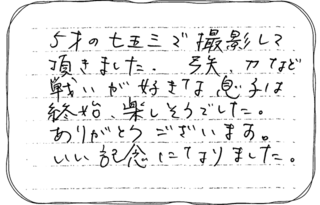 5才の七五三で撮影して
頂きました. 弓矢、刀など
戦いが好きな息子は
終始、楽しそうでした。
ありがとうございます。
いい記念になりました。